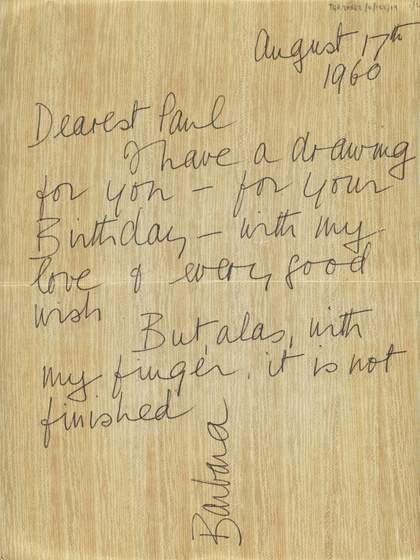 August 17th
1960
Dearest Paul
I have a drawing
for you – for your
Birthday – with my
love & every good
wish
But, alas, with
my finger, it is not
finished
Barbara